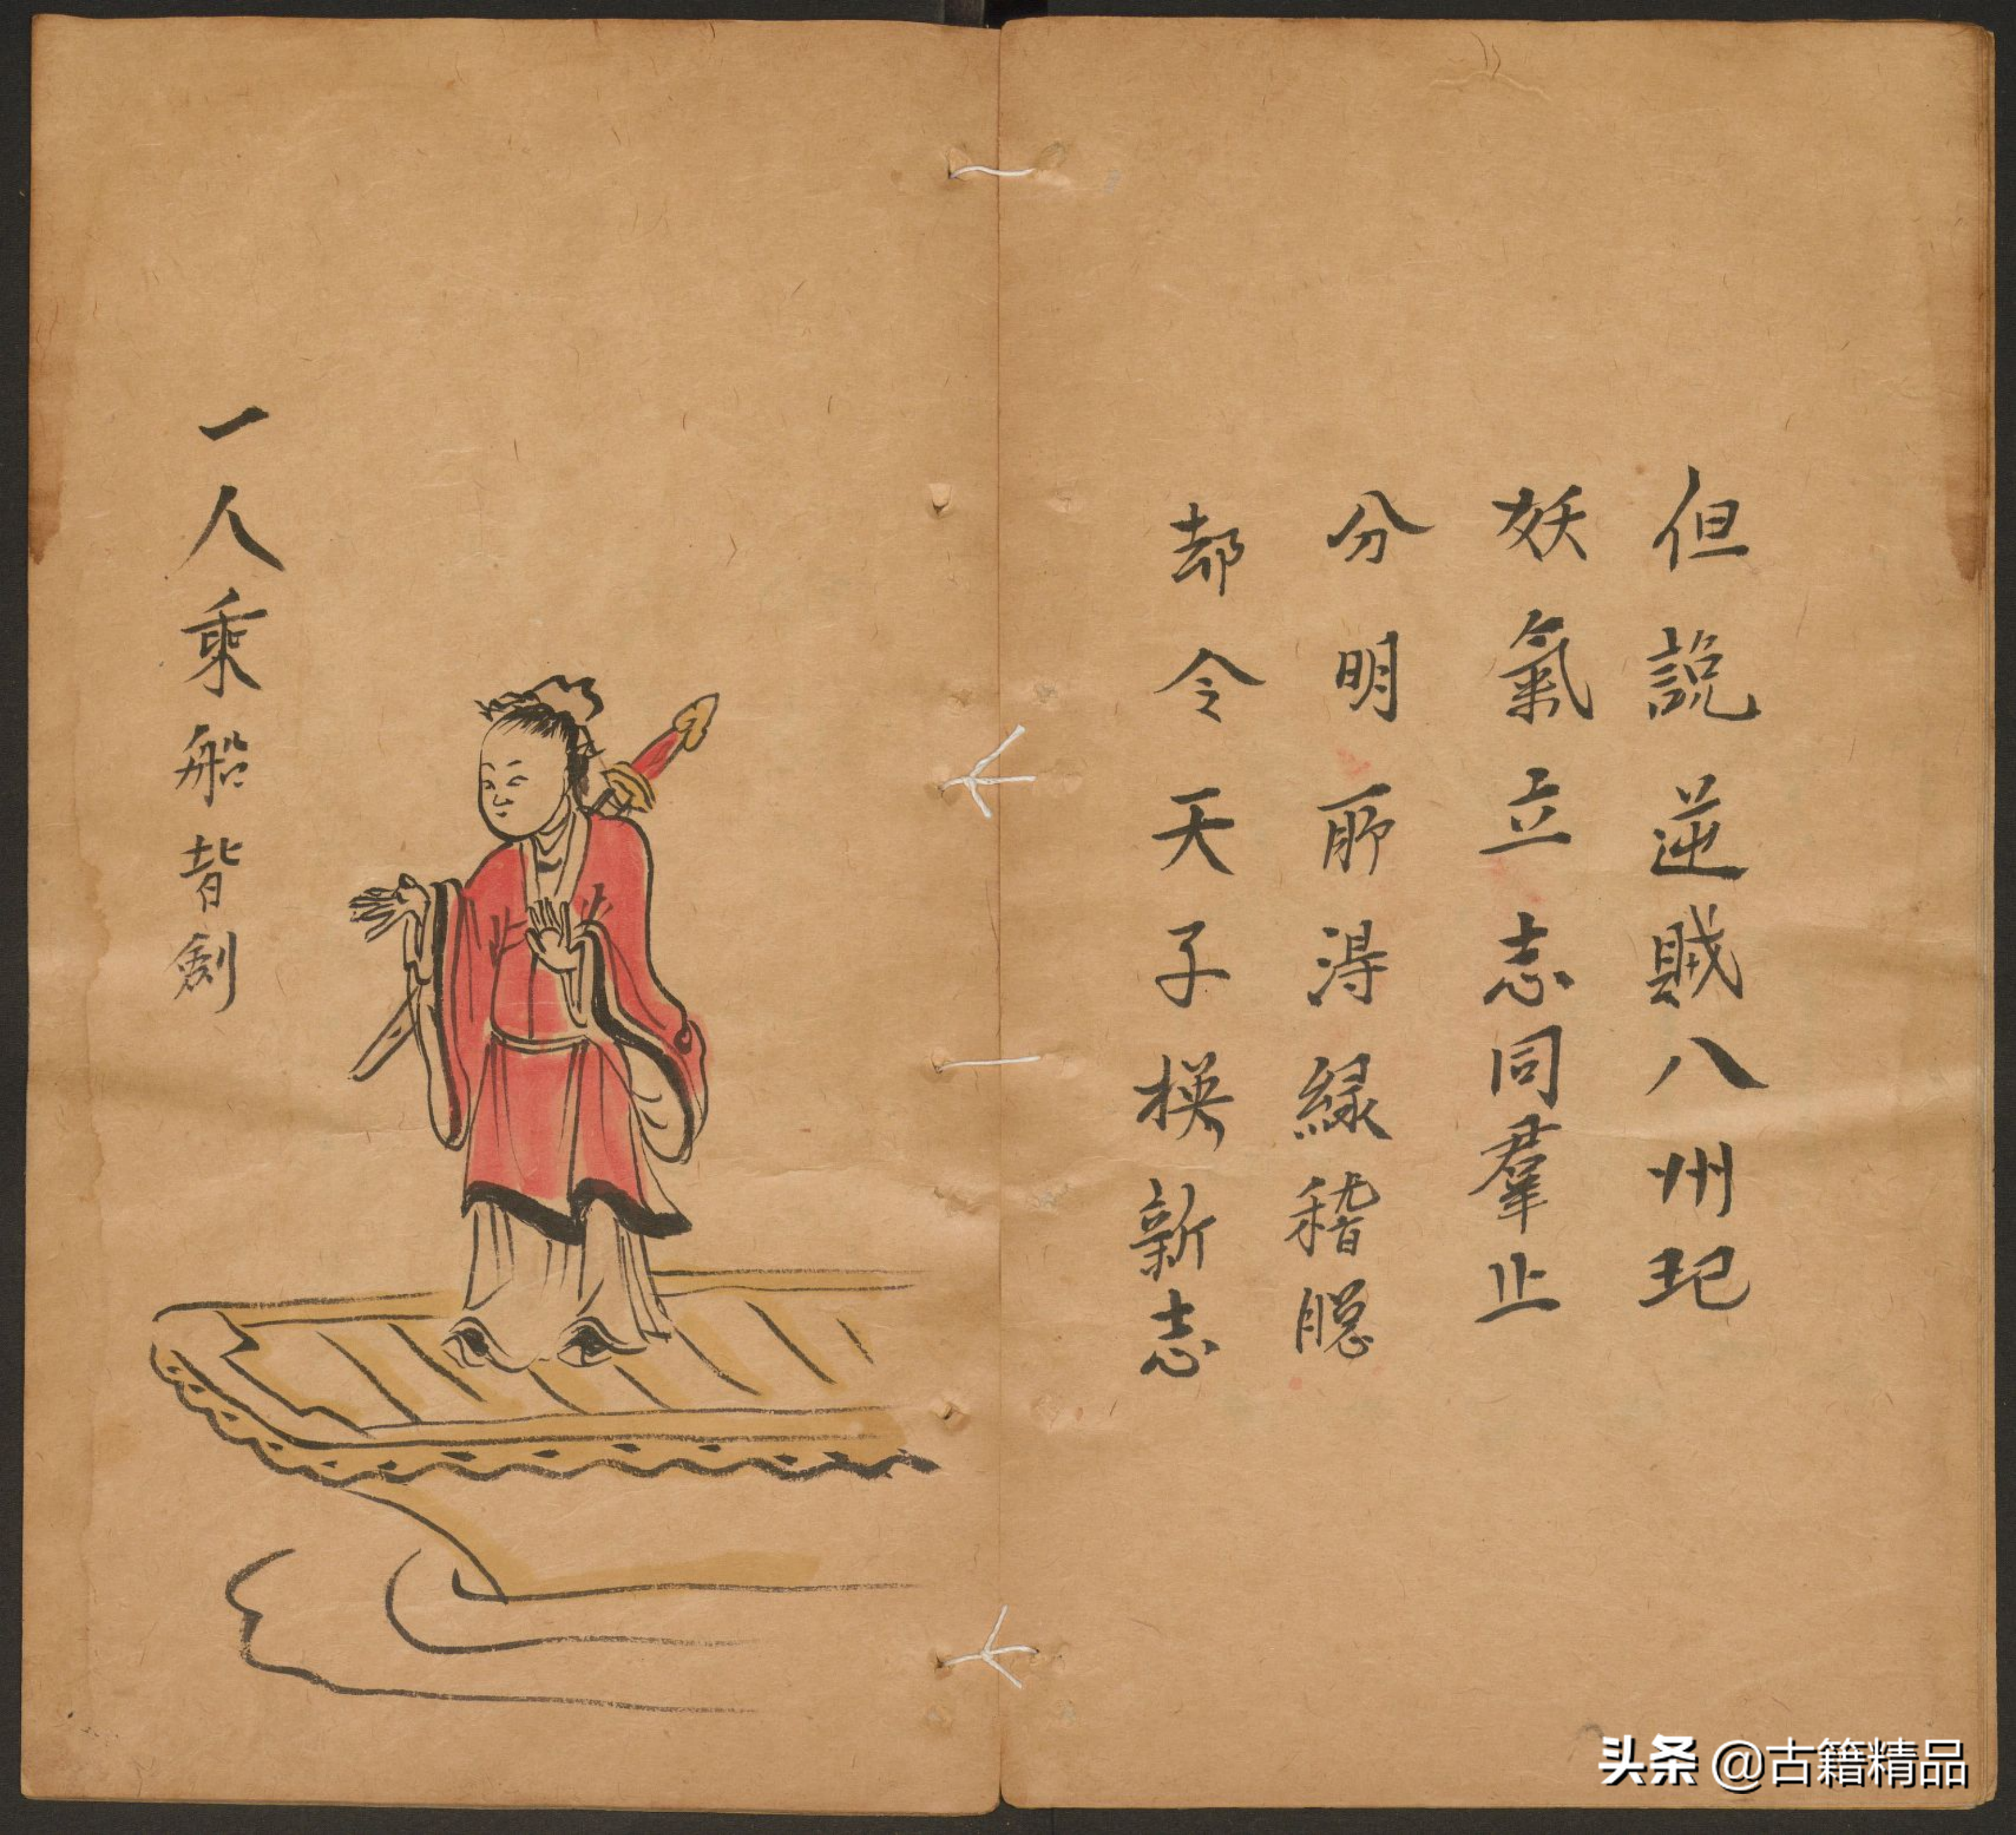 但說逆賊八州玘
妖氣立志同羣止
分明所得緣稽聪
却令天子模新志
一人乘船背劍
头条 @古籍精品